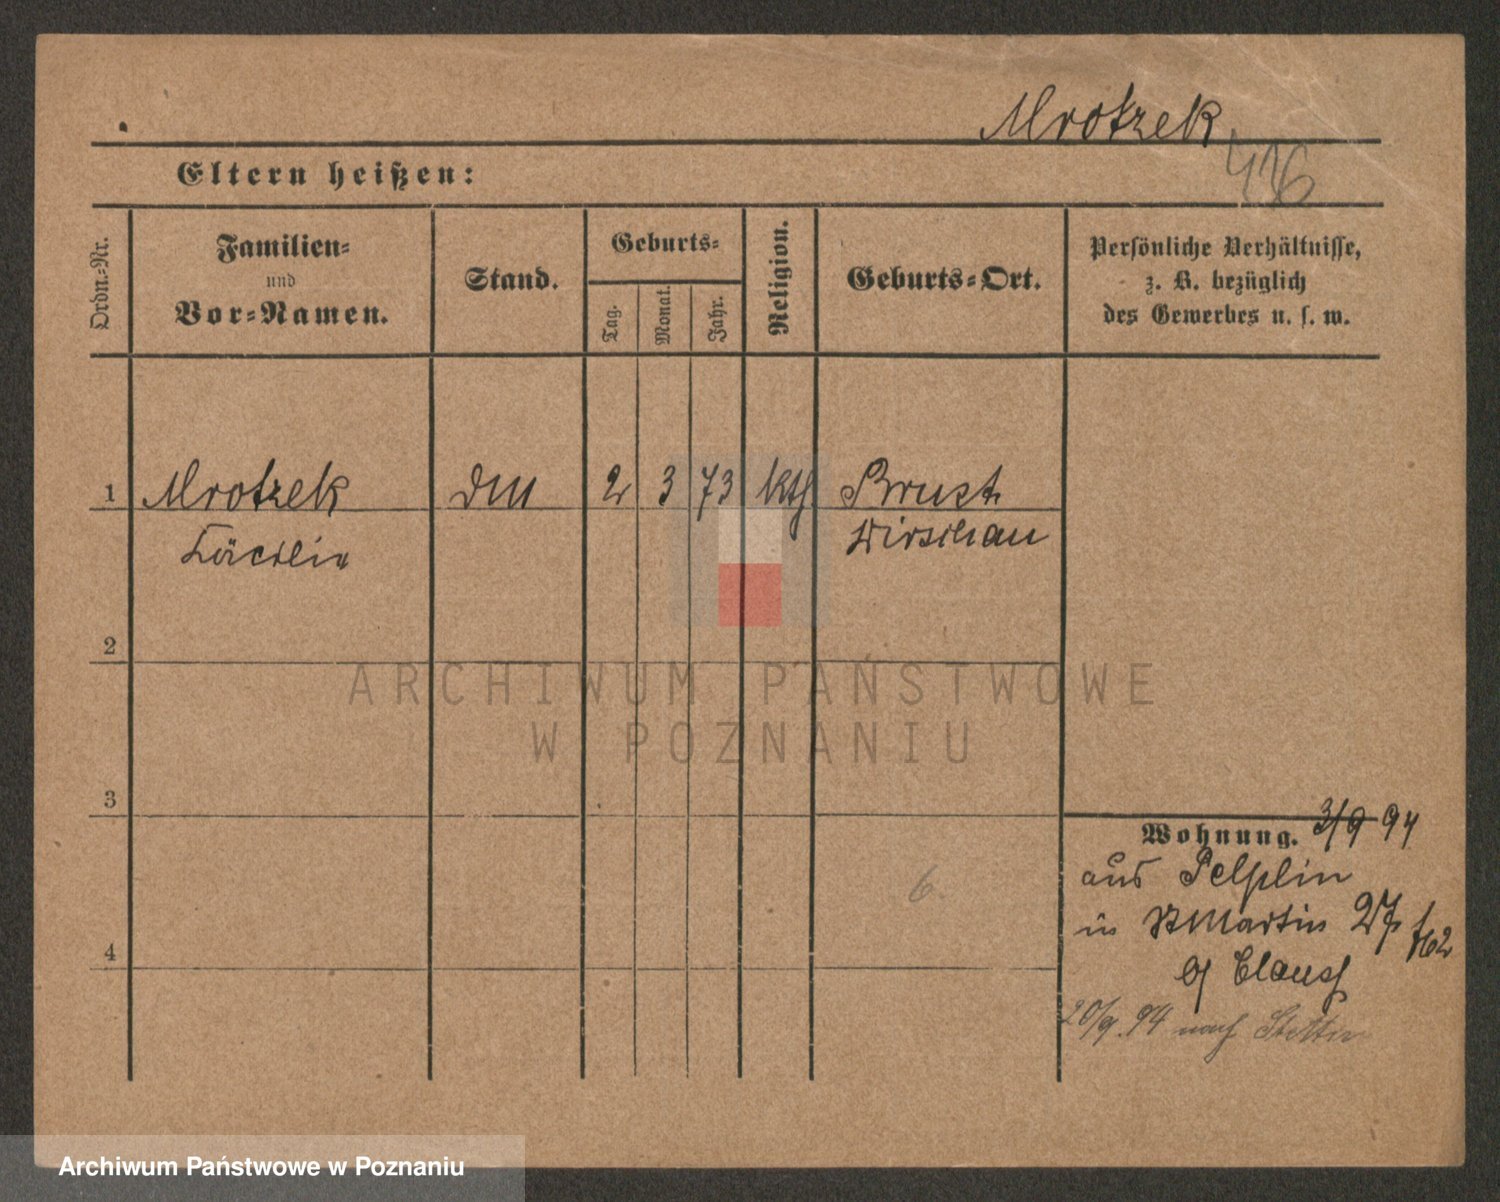 Mrotzek
416
Eltern heißen:
Ordn.-Nr.
Familien-
und
Vor-Namen.
Stand.
Geburts-
Tag.
Monat.
Jahr.
Religion.
Geburts-Ort.
Persönliche Verhältnisse,
z. B. bezüglich
des Gewerbes u. s. w.
1 Mrotzek 2 3 73 kth Brust
Cäcilie Dirschau
2
3
4
ARCHIWUM PAŃSTWOWE
W POZNANIU
Wohnung. 3/9 94
aus Pelplin
in St Martin 27
b/ Clauss
6.
20/9. 94 nach Stettin
Archiwum Państwowe w Poznaniu